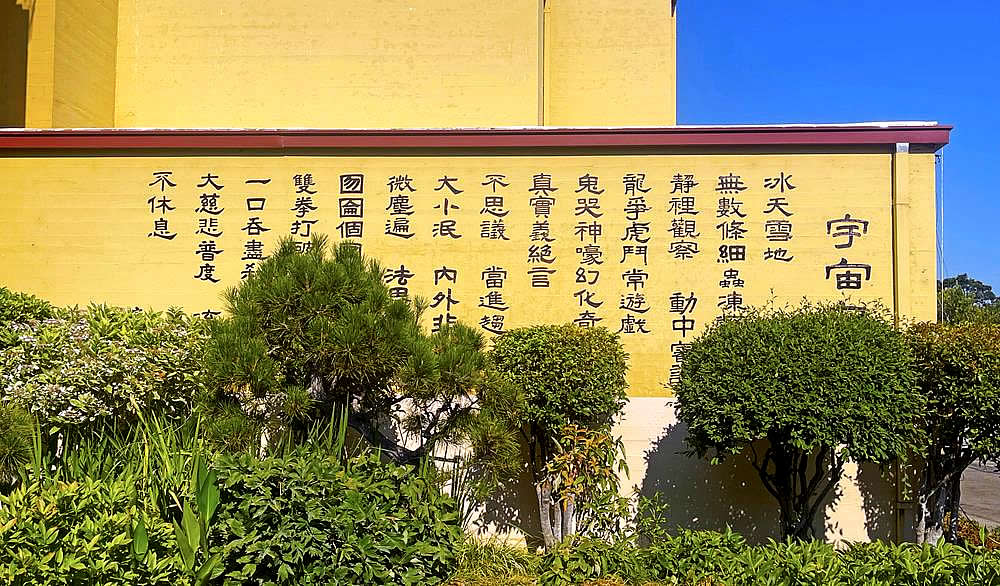 宇宙
冰天雪地
無數條細蟲凍
靜裡觀察 動中審
龍爭虎鬥常遊戲
鬼哭神嚎幻化奇
真實義絕言
不思議 當進趨
大小泯 內外非
微塵遍 法界
囫圇個圓
雙拳打破
一口吞盡剎
大慈悲普度
不休息